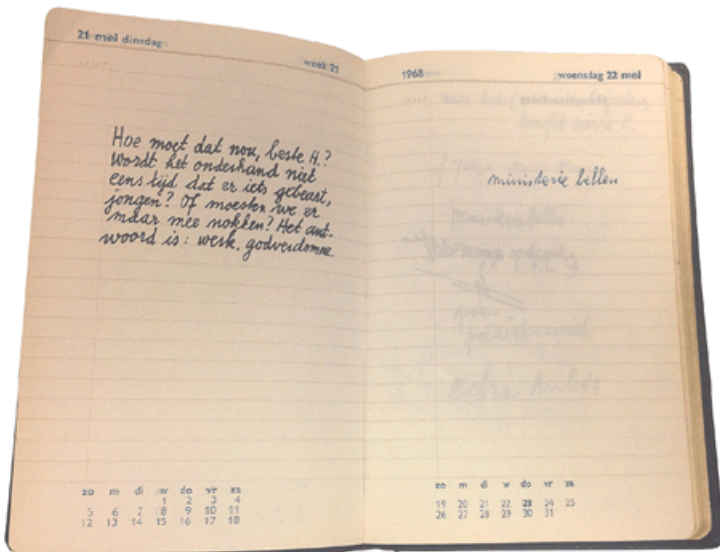 21 mei dinsdag
week 21
Hoe moet dat nou, beste H.?
Wordt het onderhand niet
eens tijd dat er iets gebeurt,
jongen? Of moesten we er
maar mee nokken? Het ant-
woord is: werk, godverdomme.
zo m di w do vr za
1 2 3 4
5 6 7 8 9 10 11
12 13 14 15 16 17 18
1968
woensdag 22 mei
ministerie bellen
zo m di w do vr za
19 20 21 22 23 24 25
26 27 28 29 30 31